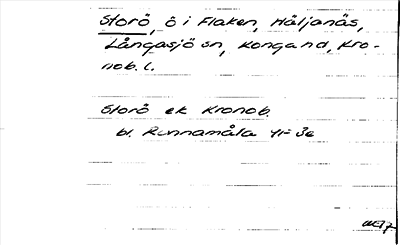 Storö, ö i Flaken, Håljanäs,
Långasjö sn, Konga hd, Kro-
nob. l.
Storö ek Kronob.
bl. Runnamåla 41-3e